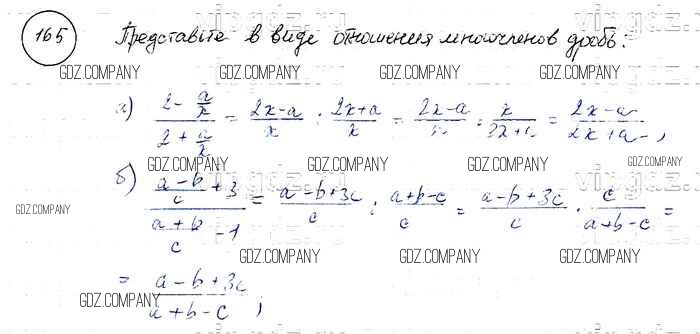 165 Представьте в виде отношения многочленов дробь:
GDZ.COMPANY GDZ.COMPANY GDZ.COMPANY
а) (2 - a/x)/(2 + a/x) = (2x-a)/x : (2x+a)/x = (2x-a)/x · x/(2x+a) = (2x-a)/(2x+a) ;
GDZ.COMPANY GDZ.COMPANY GDZ.COMPANY GDZ.COMPANY
б) ((a-b)/c + 3)/((a+b)/c - 1) = (a-b+3c)/c : (a+b-c)/c = (a-b+3c)/c · c/(a+b-c) =
GDZ.COMPANY
GDZ.COMPANY GDZ.COMPANY GDZ.COMPANY
= (a-b+3c)/(a+b-c) ;
GDZ.COMPANY